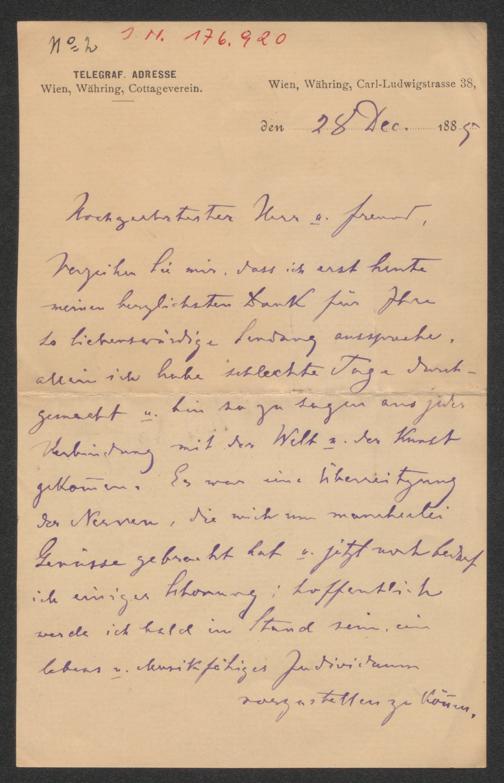 No 2 I. N. 176.920
TELEGRAF. ADRESSE
Wien, Währing, Cottageverein.
Wien, Währing, Carl-Ludwigstrasse 38,
den 28 Dec. 1885
Hochgeehrtester Herr u. Freund,
Verzeihen Sie mir, dass ich erst heute
meinen herzlichsten Dank für Ihre
so liebenswürdige Sendung ausspreche,
allein ich habe schlechte Tage durch-
gemacht u. bin so zu sagen aus jeder
Verbindung mit der Welt u. der Kunst
gekom̅en. Es war eine Überreitzung
der Nerven, die mich um mancherlei
Genüsse gebracht hat u. jetzt noch bedarf
ich einiger Schonung; hoffentlich
werde ich bald im Stand sein, ein
lebens u. Musikfähiges Individuum
vorzustellen zu kön̅en.